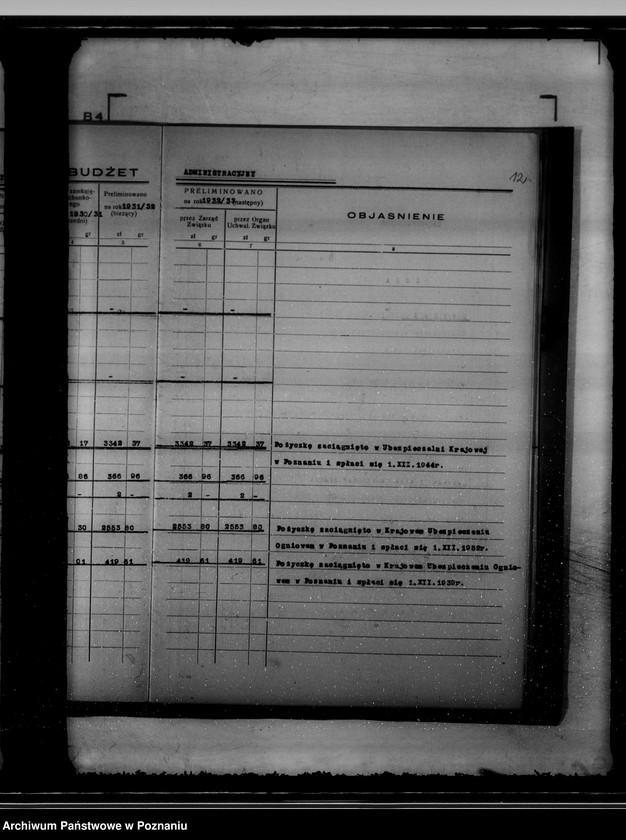 B4
12.
BUDŻET
ADMINISTRACYJNY
Preliminowano
na rok 1931/32
(bieżący)
1930/31
PRELIMINOWANO
na rok 1932/33 (następny)
przez Zarząd
Związku
przez Organ
Uchwal. Związku
OBJAŚNIENIE
gr zł gr zł gr zł gr
5 6 7 8
17 3342 37 3342 37 3342 37 Pożyczkę zaciągnięto w Ubezpieczalni Krajowej
w Poznaniu i spłaci się 1.XII.1944r.
86 366 96 366 96 366 96
- 2 - 2 - 2 -
30 2553 80 2553 80 2553 80 Pożyczkę zaciągnięto w Krajowem Ubezpieczeniu
Ogniowem w Poznaniu i spłaci się 1.XII.1952r.
01 419 61 419 61 419 61 Pożyczkę zaciągnięto w Krajowem Ubezpieczeniu Ognio-
wem w Poznaniu i spłaci się 1.XII.1939r.
Archiwum Państwowe w Poznaniu